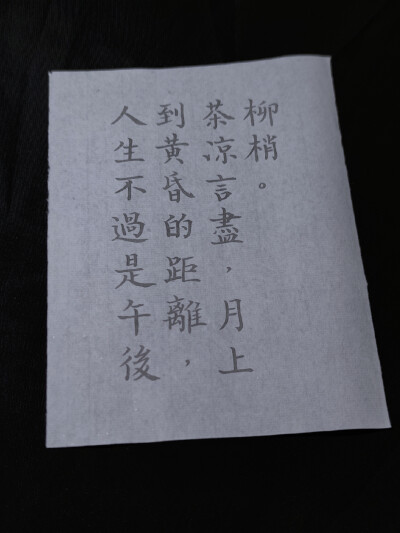 人生不過是午後
到黃昏的距離，
茶涼言盡，月上
柳梢。